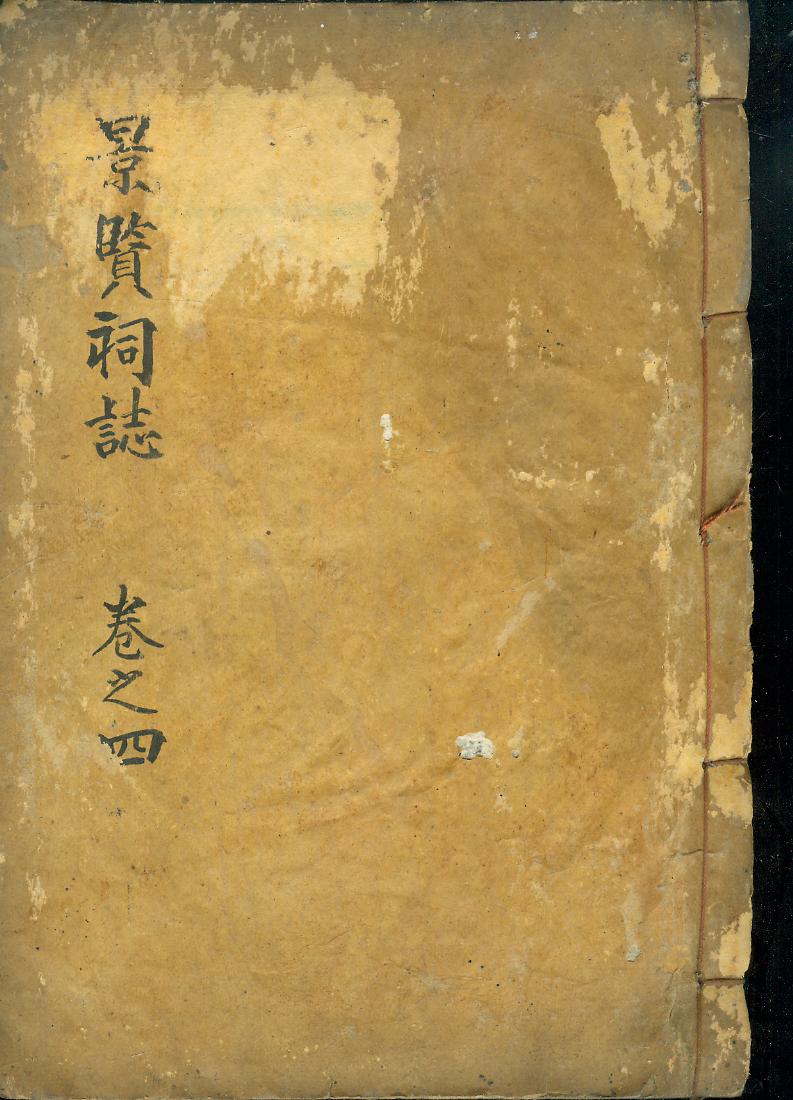 景賢祠誌 卷之四